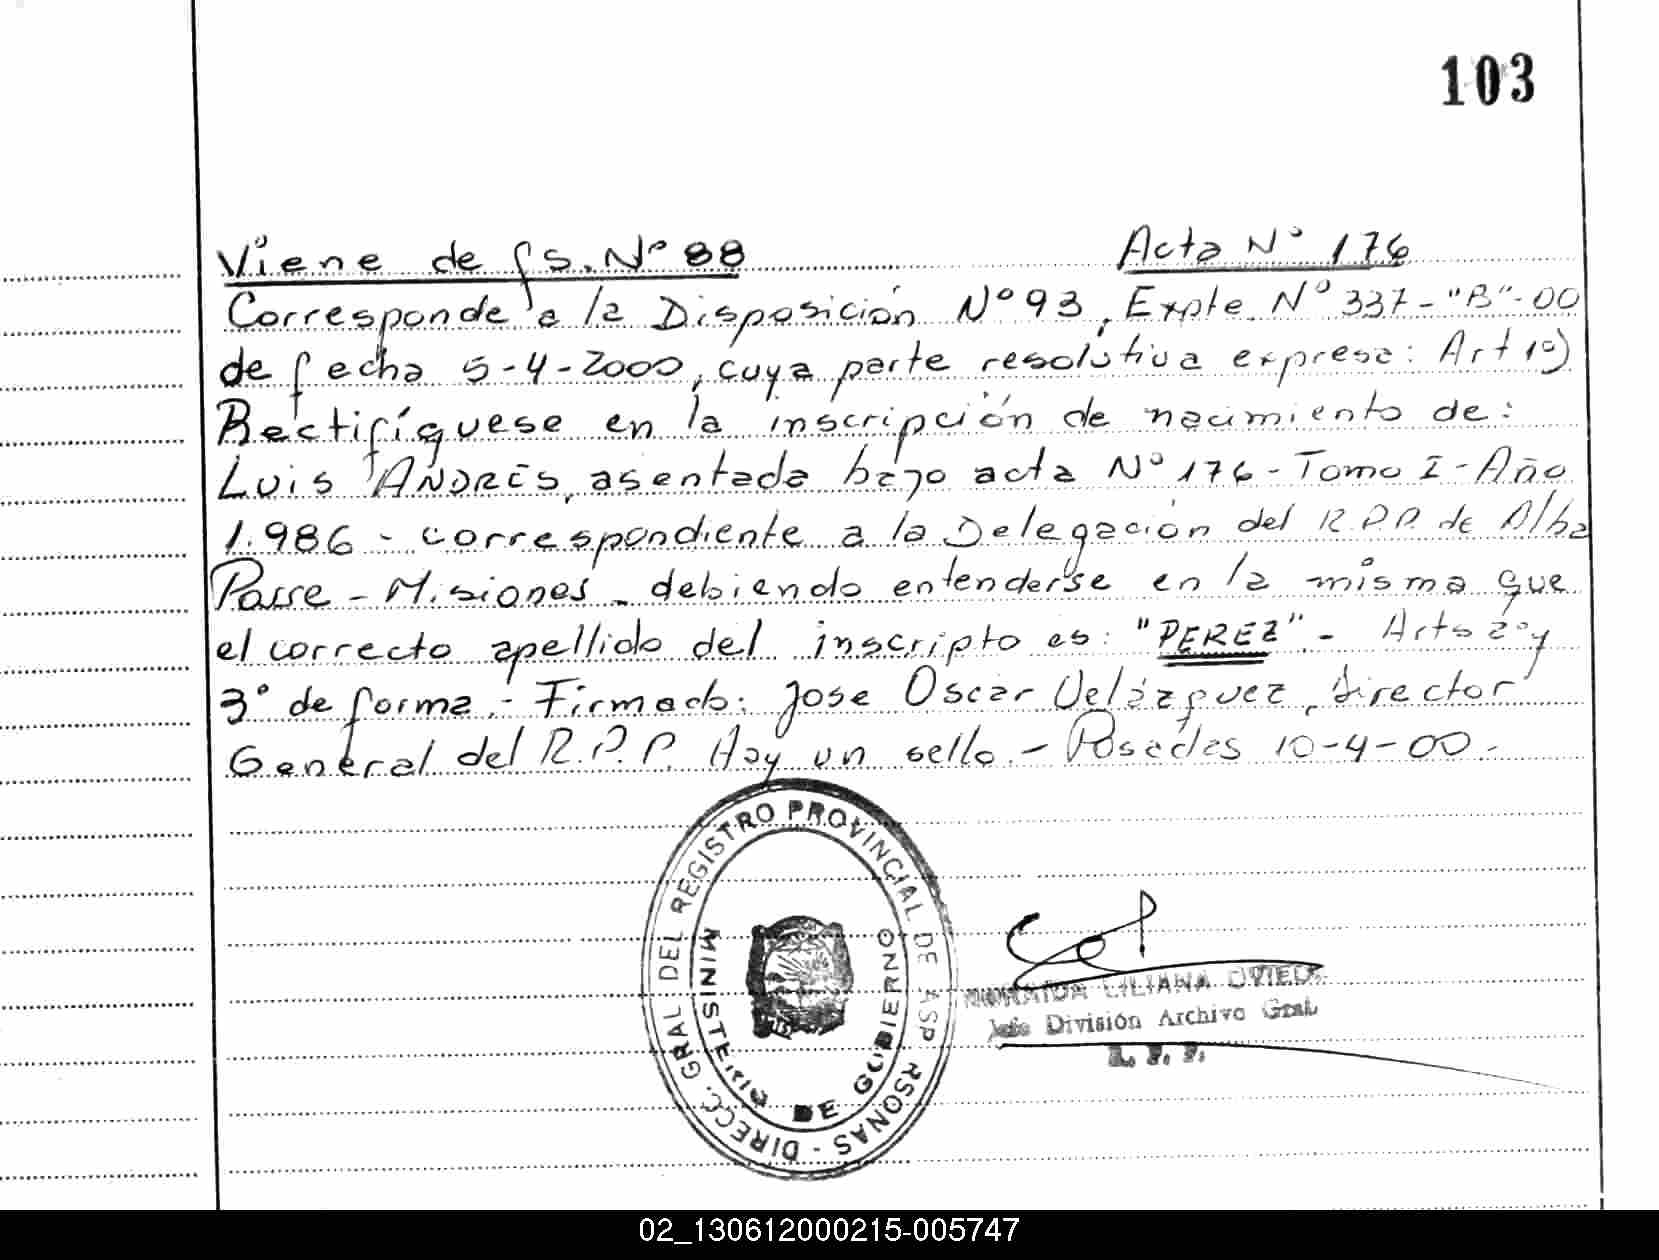 103
Viene de fs. Nº 88 Acta Nº 176
Corresponde a la Disposición Nº 93, Expte. Nº 337-"B"-00
de fecha 5-4-2000, cuya parte resolutiva expresa: Art 1º)
Rectifíquese en la inscripción de nacimiento de:
Luis ANDRÉS, asentada bajo acta Nº 176 - Tomo I - Año
1.986 - correspondiente a la Delegación del R.P.P. de Alba
Posse - Misiones - debiendo entenderse en la misma que
el correcto apellido del inscripto es: "PEREZ". - Arts 2º y
3º de forma.- Firmado: Jose Oscar Velázquez, Director
General del R.P.P. Hay un sello. - Posadas 10-4-00.-
DIRECC. GRAL DEL REGISTRO PROVINCIAL DE PERSONAS -
MINISTERIO DE GOBIERNO
LILIANA OVIEDO
Jefe División Archivo Gral.
02_130612000215-005747